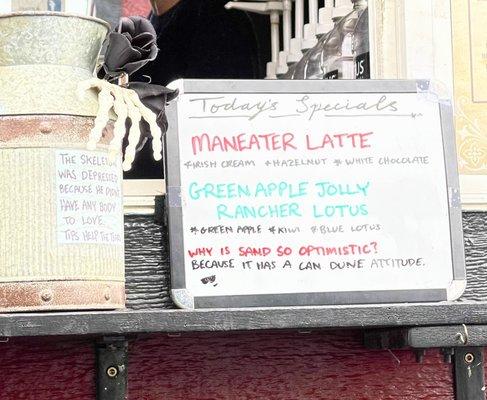 THE SKELETON
WAS DEPRESSED
BECAUSE HE DIDN'T
HAVE ANY BODY
TO LOVE.
TIPS HELP THE
Today's Specials
MANEATER LATTE
*IRISH CREAM *HAZELNUT *WHITE CHOCOLATE
GREEN APPLE JOLLY
RANCHER LOTUS
*GREEN APPLE *KIWI *BLUE LOTUS
WHY IS SAND SO OPTIMISTIC?
BECAUSE IT HAS A CAN DUNE ATTITUDE.